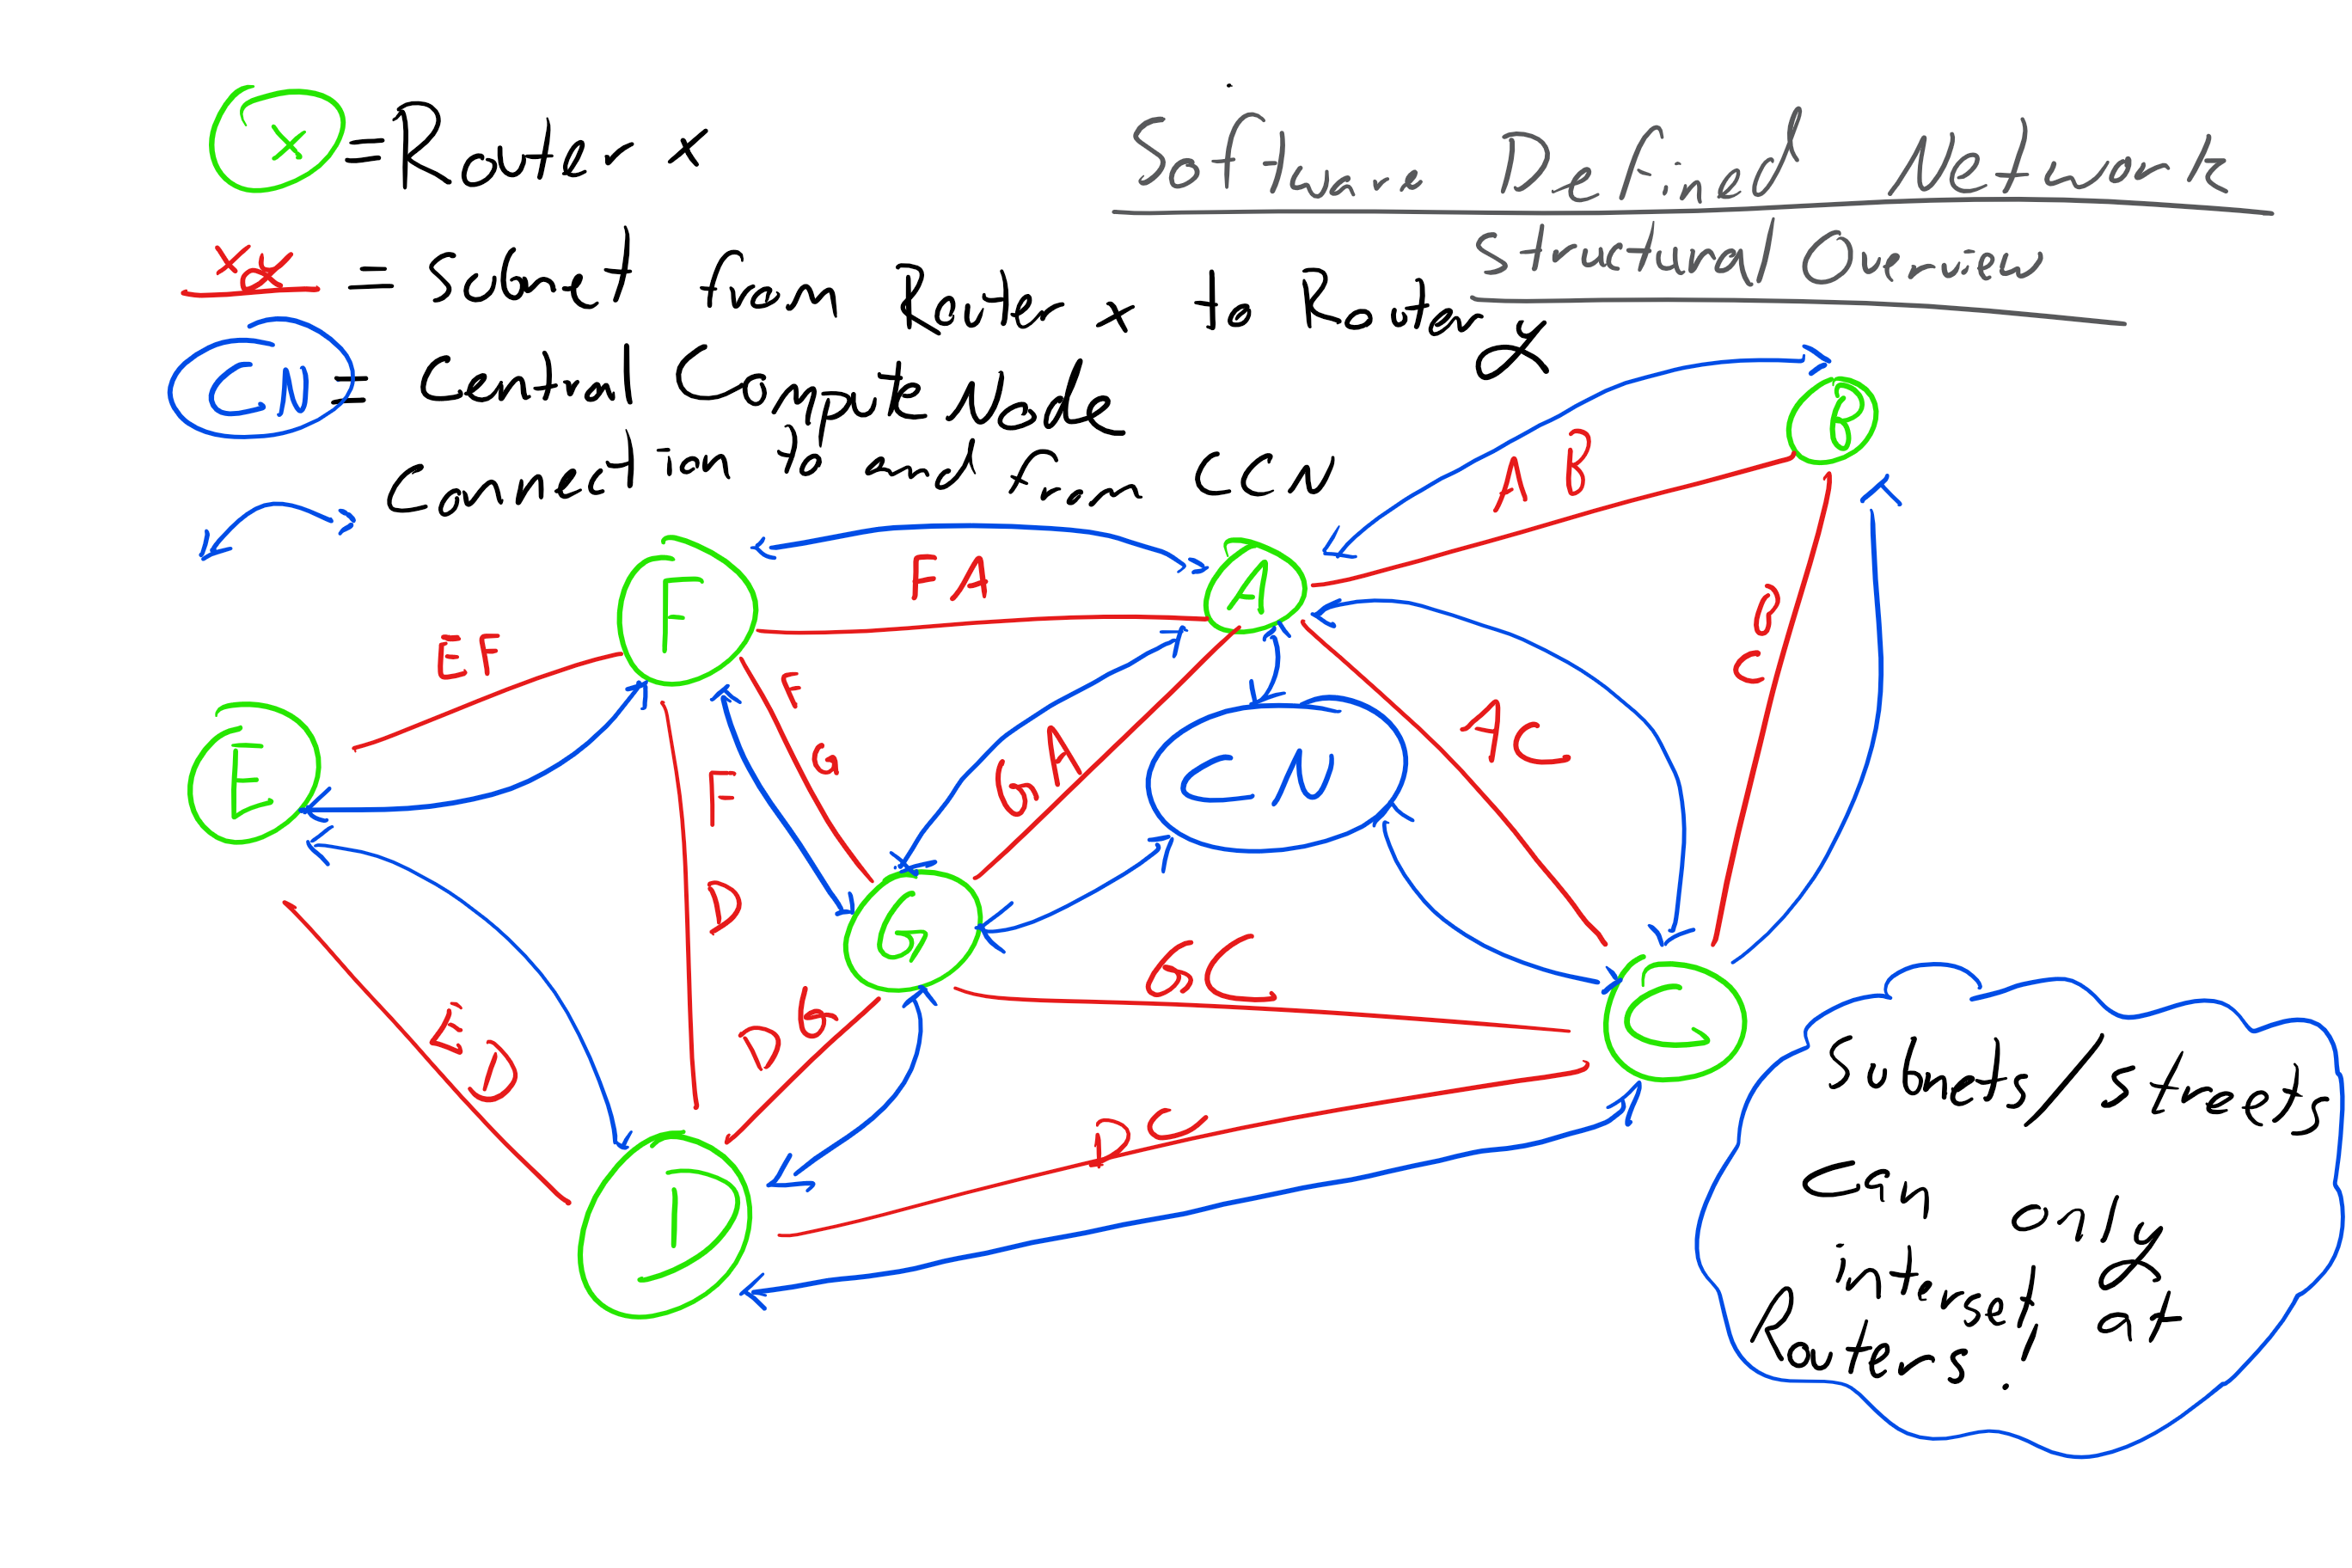 x = Router x
Software Defined Network
Structural Overview
xy = Subnet from Router x to Router y
CN = Central Compute Node
Connection to and from CCN
B
AB
F
FA
A
EF
CB
F
G
GA
AC
E
CN
F
D
G
GC
C
ED
DG
DC
D
Subnets/streets
can only
interset at
Routers!